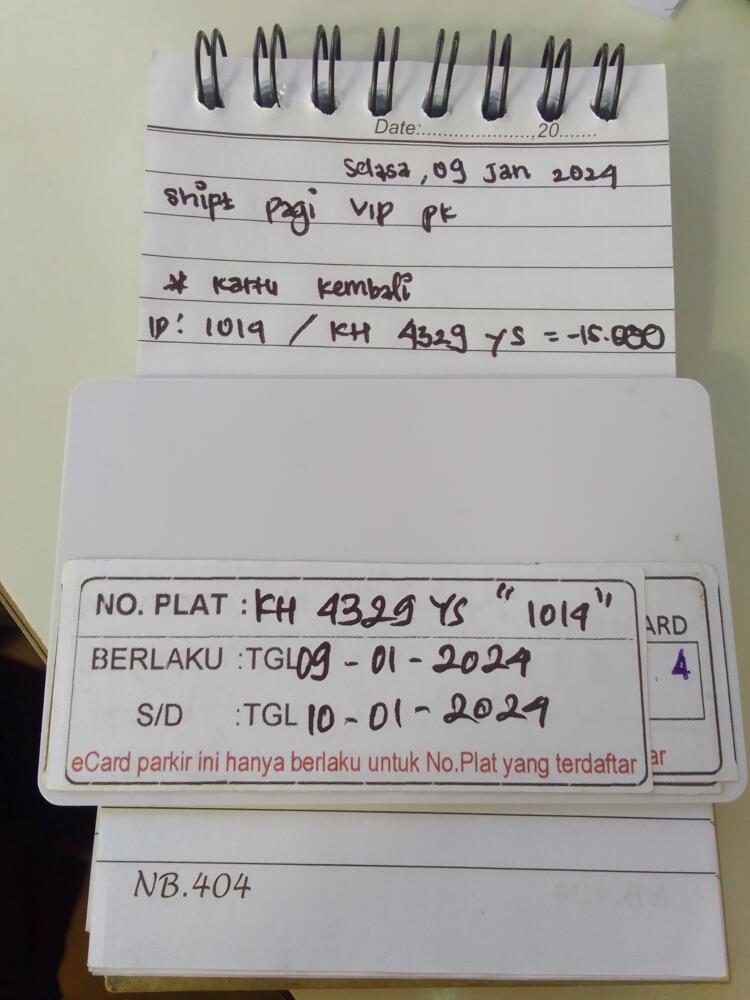 Date:...................,20.......
Selasa, 09 Jan 2024
Shipt pagi VIP pk
* Kartu Kembali
ID: 1014 / KH 4329 YS = -15.000
NO. PLAT : KH 4329 YS "1014"
ARD
BERLAKU :TGL 09-01-2024
. 4
S/D :TGL 10-01-2024
eCard parkir ini hanya berlaku untuk No.Plat yang terdaftar
ar
NB.404